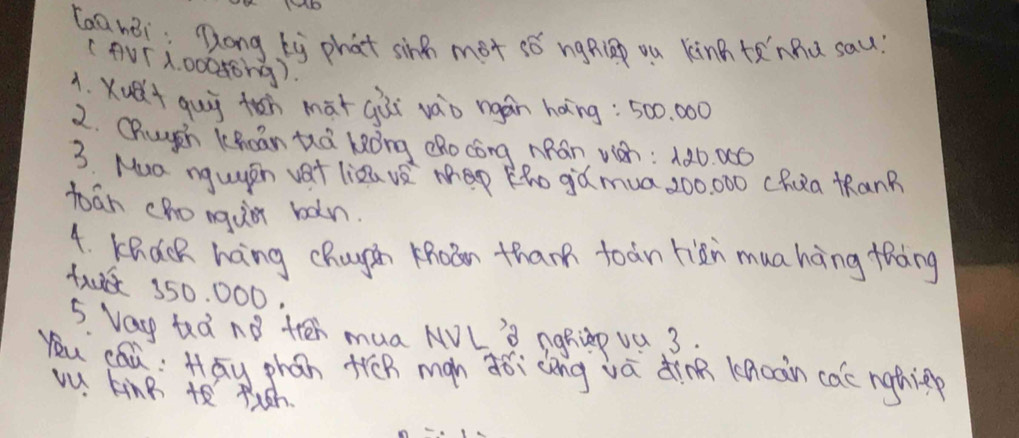 Câu hỏi: Trong kỳ phát sinh một số nghiệp vụ kinh tế như sau:
(ĐVT 1.000đồng).
1. Xuất quỹ tiền mặt gửi vào ngân hàng: 500.000
2. Chuyển khoản trả lương cho công nhân viên: 120.000
3. Mua nguyên vật liệu về nhập kho giá mua 200.000 chưa thanh
toán cho người bán.
4. Khách hàng chuyển khoản thanh toán tiền mua hàng tháng
trước 350.000.
5. Vay trả nợ tiền mua NVL ở nghiệp vụ 3.
Yêu cầu: Hãy phân tích mqh đối ứng và định khoản các nghiệp
vụ kinh tế trên.